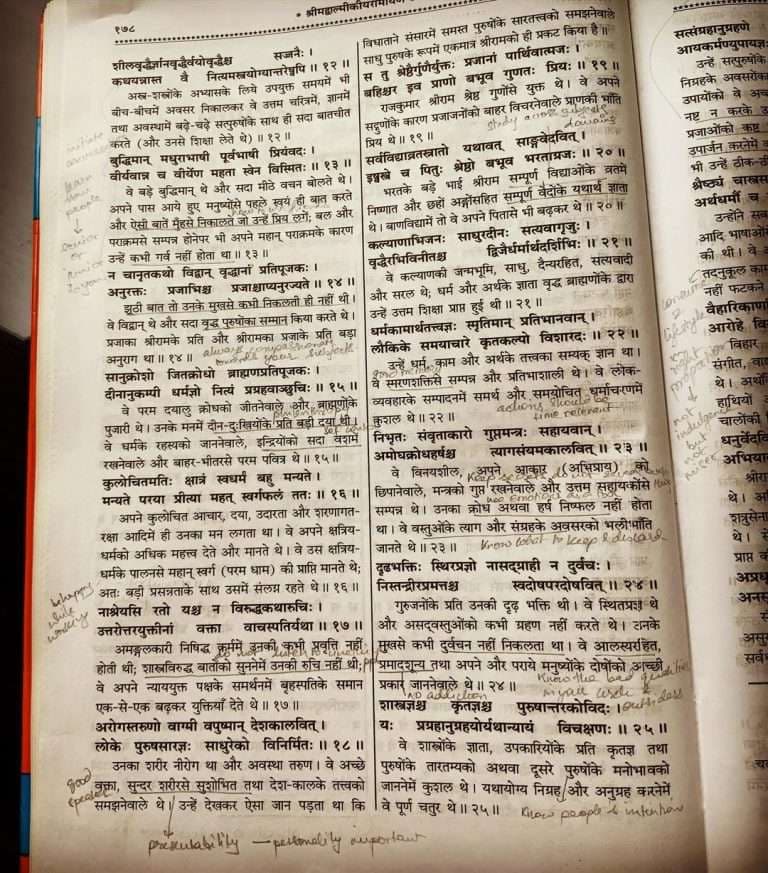 १७८
* श्रीमद्वाल्मीकीयरामायण *
शीलवृद्धैर्ज्ञानवृद्धैर्वयोवृद्धैश्च सज्जनैः ।
कथयन्नास्त वै नित्यमस्त्रयोग्यान्तरेष्वपि ॥ १२ ॥
अस्त्र-शस्त्रोंके अभ्यासके लिये उपयुक्त समयमें भी
बीच-बीचमें अवसर निकालकर वे उत्तम चरित्रमें, ज्ञानमें
तथा अवस्थामें बढ़े-चढ़े सत्पुरुषोंके साथ ही सदा बातचीत
करते (और उनसे शिक्षा लेते थे) ॥ १२ ॥
बुद्धिमान् मधुराभाषी पूर्वभाषी प्रियंवदः ।
वीर्यवान्न च वीर्येण महता स्वेन विस्मितः ॥ १३ ॥
वे बड़े बुद्धिमान् थे और सदा मीठे वचन बोलते थे।
अपने पास आये हुए मनुष्योंसे पहले स्वयं ही बात करते
और ऐसी बातें मुँहसे निकालते जो उन्हें प्रिय लगें; बल और
पराक्रमसे सम्पन्न होनेपर भी अपने महान् पराक्रमके कारण
उन्हें कभी गर्व नहीं होता था ॥ १३ ॥
न चानृतकथो विद्वान् वृद्धानां प्रतिपूजकः ।
अनुरक्तः प्रजाभिश्च प्रजाश्चाप्यनुरज्यते ॥ १४ ॥
झूठी बात तो उनके मुखसे कभी निकलती ही नहीं थी।
वे विद्वान् थे और सदा वृद्ध पुरुषोंका सम्मान किया करते थे।
प्रजाका श्रीरामके प्रति और श्रीरामका प्रजाके प्रति बड़ा
अनुराग था ॥ १४ ॥
always compassionate
towards your subjects
सानुक्रोशो जितक्रोधो ब्राह्मणप्रतिपूजकः ।
दीनानुकम्पी धर्मज्ञो नित्यं प्रग्रहवाञ्छुचिः ॥ १५ ॥
वे परम दयालु क्रोधको जीतनेवाले और ब्राह्मणोंके
पुजारी थे। उनके मनमें दीन-दुःखियोंके प्रति बड़ी दया थी।
वे धर्मके रहस्यको जाननेवाले, इन्द्रियोंको सदा वशमें
रखनेवाले और बाहर-भीतरसे परम पवित्र थे ॥ १५ ॥
कुलोचितमतिः क्षात्रं स्वधर्मं बहु मन्यते ।
मन्यते परया प्रीत्या महत् स्वर्गफलं ततः ॥ १६ ॥
अपने कुलोचित आचार, दया, उदारता और शरणागत-
रक्षा आदिमें ही उनका मन लगता था। वे अपने क्षत्रिय-
धर्मको अधिक महत्त्व देते और मानते थे। वे उस क्षत्रिय-
धर्मके पालनसे महान् स्वर्ग (परम धाम) की प्राप्ति मानते थे;
अतः बड़ी प्रसन्नताके साथ उसमें संलग्न रहते थे ॥ १६ ॥
नाश्रेयसि रतो यश्च न विरुद्धकथारुचिः ।
उत्तरोत्तरयुक्तीनां वक्ता वाचस्पतिर्यथा ॥ १७ ॥
अमङ्गलकारी निषिद्ध कर्ममें उनकी कभी प्रवृत्ति नहीं
होती थी; शास्त्रविरुद्ध बातोंको सुननेमें उनकी रुचि नहीं थी;
वे अपने न्याययुक्त पक्षके समर्थनमें बृहस्पतिके समान
एक-से-एक बढ़कर युक्तियाँ देते थे ॥ १७ ॥
अरोगस्तरुणो वाग्मी वपुष्मान् देशकालवित् ।
लोके पुरुषसारज्ञः साधुरेको विनिर्मितः ॥ १८ ॥
उनका शरीर नीरोग था और अवस्था तरुण। वे अच्छे
वक्ता, सुन्दर शरीरसे सुशोभित तथा देश-कालके तत्त्वको
समझनेवाले थे। उन्हें देखकर ऐसा जान पड़ता था कि
good
speaker
presentability — personality important
विधाताने संसारमें समस्त पुरुषोंके सारतत्त्वको समझनेवाले
साधु पुरुषके रूपमें एकमात्र श्रीरामको ही प्रकट किया है ॥
स तु श्रेष्ठैर्गुणैर्युक्तः प्रजानां पार्थिवात्मजः ।
बहिश्चर इव प्राणो बभूव गुणतः प्रियः ॥ १९ ॥
राजकुमार श्रीराम श्रेष्ठ गुणोंसे युक्त थे। वे अपने
सद्गुणोंके कारण प्रजाजनोंको बाहर विचरनेवाले प्राणकी भाँति
प्रिय थे ॥ १९ ॥
study across subjects
domains
सर्वविद्याव्रतस्नातो यथावत् साङ्गवेदवित् ।
इष्वस्त्रे च पितुः श्रेष्ठो बभूव भरताग्रजः ॥ २० ॥
भरतके बड़े भाई श्रीराम सम्पूर्ण विद्याओंके व्रतमें
निष्णात और छहों अङ्गोंसहित सम्पूर्ण वेदोंके यथार्थ ज्ञाता
थे। बाणविद्यामें तो वे अपने पितासे भी बढ़कर थे ॥ २० ॥
कल्याणाभिजनः साधुरदीनः सत्यवागृजुः ।
वृद्धैरभिविनीतश्च द्विजैर्धर्मार्थदर्शिभिः ॥ २१ ॥
वे कल्याणकी जन्मभूमि, साधु, दैन्यरहित, सत्यवादी
और सरल थे; धर्म और अर्थके ज्ञाता वृद्ध ब्राह्मणोंके द्वारा
उन्हें उत्तम शिक्षा प्राप्त हुई थी ॥ २१ ॥
धर्मकामार्थतत्त्वज्ञः स्मृतिमान् प्रतिभानवान् ।
लौकिके समयाचारे कृतकल्पो विशारदः ॥ २२ ॥
उन्हें धर्म, काम और अर्थके तत्त्वका सम्यक् ज्ञान था।
good memory
वे स्मरणशक्तिसे सम्पन्न और प्रतिभाशाली थे। वे लोक-
व्यवहारके सम्पादनमें समर्थ और समयोचित धर्माचरणमें
कुशल थे ॥ २२ ॥
actions should be
time relevant
निभृतः संवृताकारो गुप्तमन्त्रः सहायवान् ।
अमोघक्रोधहर्षश्च त्यागसंयमकालवित् ॥ २३ ॥
वे विनयशील, अपने आकार (अभिप्राय) को
छिपानेवाले, मन्त्रको गुप्त रखनेवाले और उत्तम सहायकोंसे
सम्पन्न थे। उनका क्रोध अथवा हर्ष निष्फल नहीं होता
था। वे वस्तुओंके त्याग और संग्रहके अवसरको भलीभाँति
जानते थे ॥ २३ ॥
Know what to keep & discard
दृढभक्तिः स्थिरप्रज्ञो नासद्ग्राही न दुर्वचः ।
निस्तन्द्रीरप्रमत्तश्च स्वदोषपरदोषवित् ॥ २४ ॥
गुरुजनोंके प्रति उनकी दृढ़ भक्ति थी। वे स्थितप्रज्ञ थे
और असद्वस्तुओंको कभी ग्रहण नहीं करते थे। उनके
मुखसे कभी दुर्वचन नहीं निकलता था। वे आलस्यरहित,
प्रमादशून्य तथा अपने और पराये मनुष्योंके दोषोंको अच्छी
प्रकार जाननेवाले थे ॥ २४ ॥
no addiction
शास्त्रज्ञश्च कृतज्ञश्च पुरुषान्तरकोविदः ।
यः प्रग्रहानुग्रहयोर्यथान्यायं विचक्षणः ॥ २५ ॥
वे शास्त्रोंके ज्ञाता, उपकारियोंके प्रति कृतज्ञ तथा
पुरुषोंके तारतम्यको अथवा दूसरे पुरुषोंके मनोभावको
जाननेमें कुशल थे। यथायोग्य निग्रह और अनुग्रह करनेमें
वे पूर्ण चतुर थे ॥ २५ ॥
Know people & intention
सत्संग्रहानुग्रहणे
आयकर्मण्युपायज्ञः
उन्हें सत्पुरुषोंके
निग्रहके अवसरोंका
उपायोंको वे अच्छ
नष्ट न करके उ
प्रजाओंको कष्ट
उपार्जन करनेमें क
भी उन्हें ठीक-ठी
श्रैष्ठ्यं चास्त्रस
अर्थधर्मौ च
उन्होंने सब
आदि भाषाओं
की थी। वे अ
तदनुकूल काम
नहीं फटकने
वैहारिकाणां
आरोहे वि
विहार
संगीत, वा
थे। अर्थो
हाथियों अ
चालोंकी
धनुर्वेदवि
अभियात